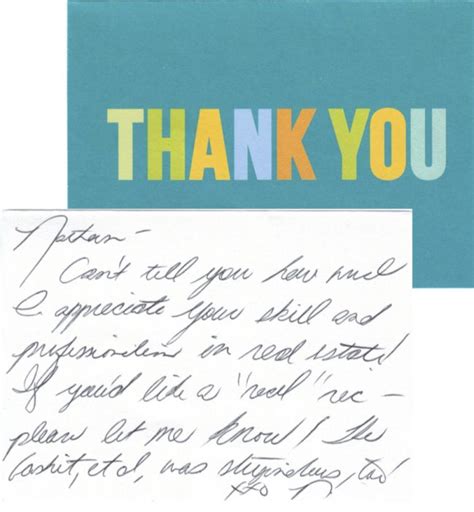 THANK YOU
Nathan -
Can't tell you how much
I appreciate your skill and
professionalism in real estate!
If you'd like a "real" rec -
please let me know! The
et al, was stupendous, too!
XXO